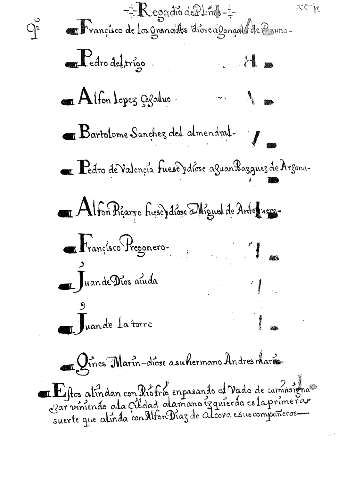 Regadio de
Françisco de los Granados diose a Gonçalo de
Pedro del trigo
Alfon Lopez
Bartolome Sanchez del almendral
Pedro de Valençia fuese y diose a Juan Bazquez de
Alfon Piçarro fuese y diose a Miguel de Antequera
Françisco Pregonero
Juan de Dios aiuda
Juan de la torre
Gines Marin diose a su hermano Andres Marin
Estos alindan con Riofrio en pasando el Vado de
viniendo a la Ciudad a la mano izquierda es la primera
suerte que alinda con Alfon Diaz de Alcova e sus compañeros